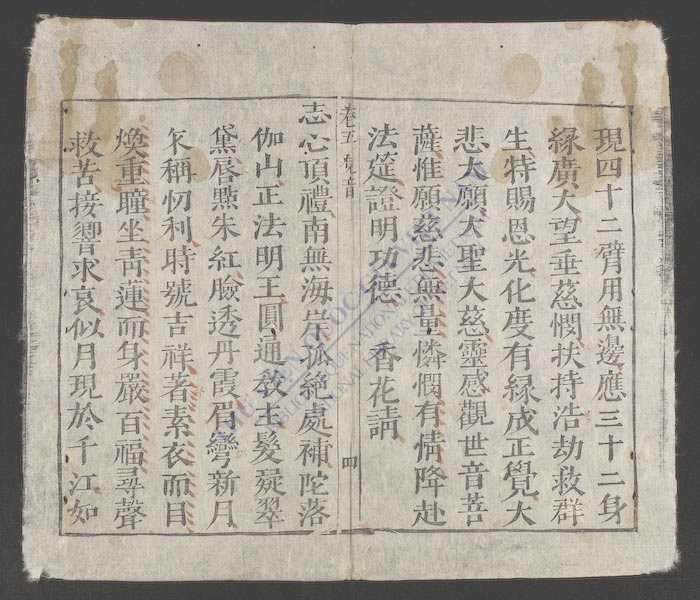 現四十二臂用無邊應三十二身
緣廣大望垂慈憫扶持浩劫救群
生特賜恩光化度有緣成正覺大
悲大願大聖大慈靈感觀世音菩
薩惟願慈悲無量憐憫有情降赴
法筵證明功德 香花請
卷五 音 四
志心頂禮南無海岸孤絕處補陀落
伽山正法明王圓通教主髮凝翠
黛唇點朱紅臉透丹霞眉彎新月
乍稱忉利時號吉祥著素衣而目
煥重瞳坐青蓮而身嚴百福尋聲
救苦接響求哀似月現於千江如